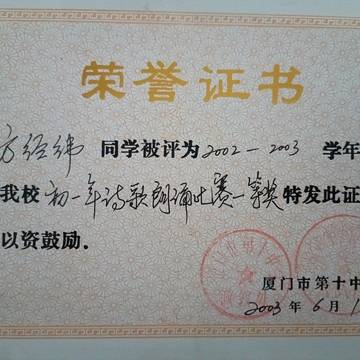 荣誉证书
方经纬 同学被评为2002—2003 学年
我校初一年诗歌朗诵比赛一等奖特发此证
以资鼓励.
厦门市第十中
2003年6月1